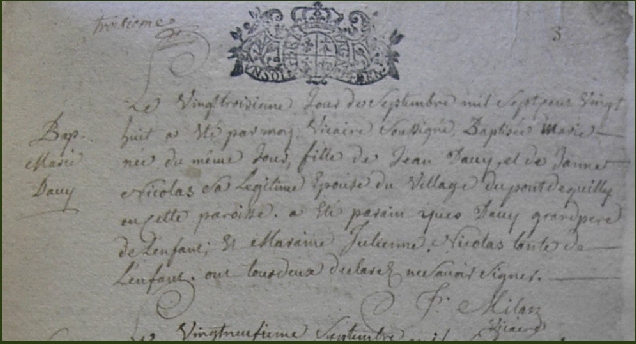 troisieme
3
Le Vingtroisieme Jour de Septembre mil Sept cens Vingt
huit a Eté par moy Vicaire Soussigné Baptisée Marie
née du même Jour, fille de Jean Davy, et de Janne
Nicolas Sa Legitime Epouse du Village du pont de quilly
en cette paroisse. a Eté parain Davy grand pere
de L'enfant; Et Maraine Julienne Nicolas tante de
L'enfant. ont tous deux declaré ne savoir Signer.
Bap-
Marie
Davy
F. Milan
Vicaire
Vingtneufieme Septembre